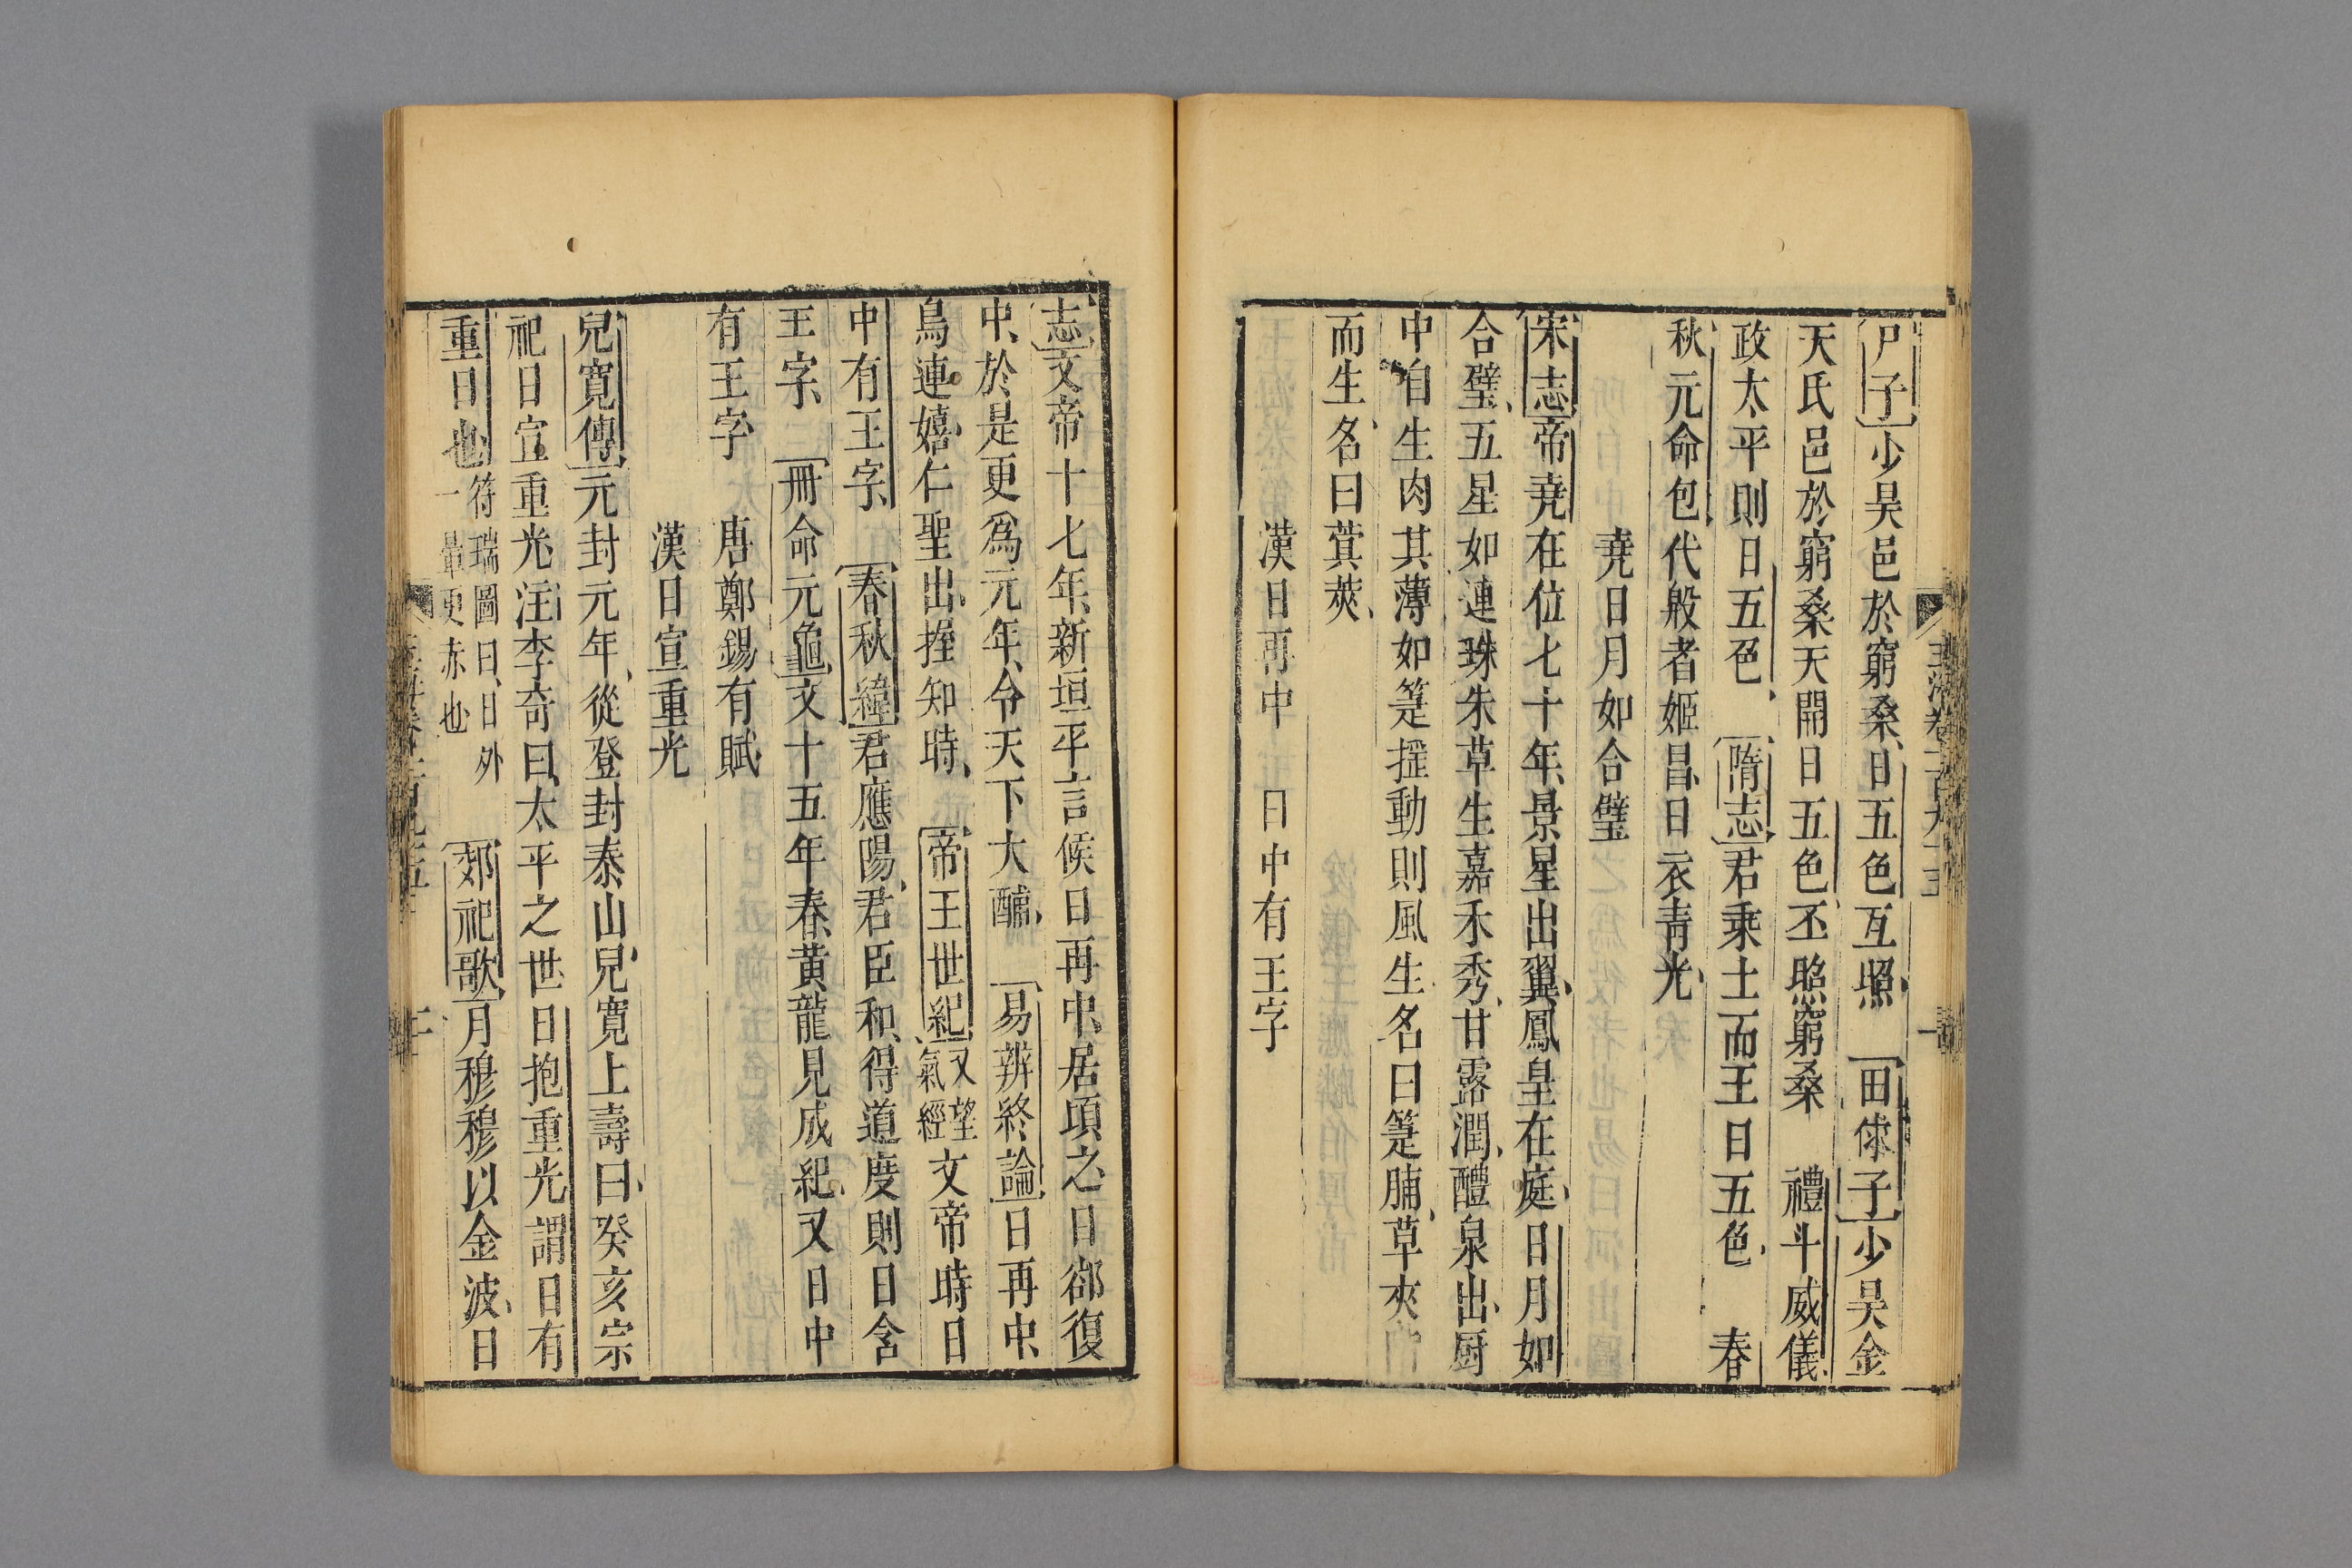 玉海卷一百九十五
一
尸子少昊邑於窮桑日五色互照　田俅子少昊金
天氏邑於窮桑天開日五色丕照窮桑　禮斗威儀
政太平則日五色　隋志君乗土而王日五色　春
秋元命包代殷者姬昌日衣青光
堯日月如合璧
宋志帝堯在位七十年景星出翼鳳皇在庭日月如
合璧五星如連珠朱草生嘉禾秀甘露潤醴泉出厨
中自生肉其薄如箑揺動則風生名曰箑脯草夾
而生名曰蓂莢
漢日再中　日中有王字
志文帝十七年新垣平言候日再中居頃之日郤復
中於是更爲元年令天下大酺　易辨終論日再中
烏連嬉仁聖出握知時　帝王世紀又望氣經文帝時日
中有王字　春秋緯君應陽君臣和得道度則日含
王字　冊命元龜文十五年春黄龍見成紀又日中
有王字　唐鄭錫有賦
漢日宣重光
兒寛傳元封元年從登封泰山兒寛上壽曰癸亥宗
祀日宣重光注李奇曰太平之世日抱重光謂日有
重日也符瑞圖曰日外一暈更赤也　郊祀歌月穆穆以金波日